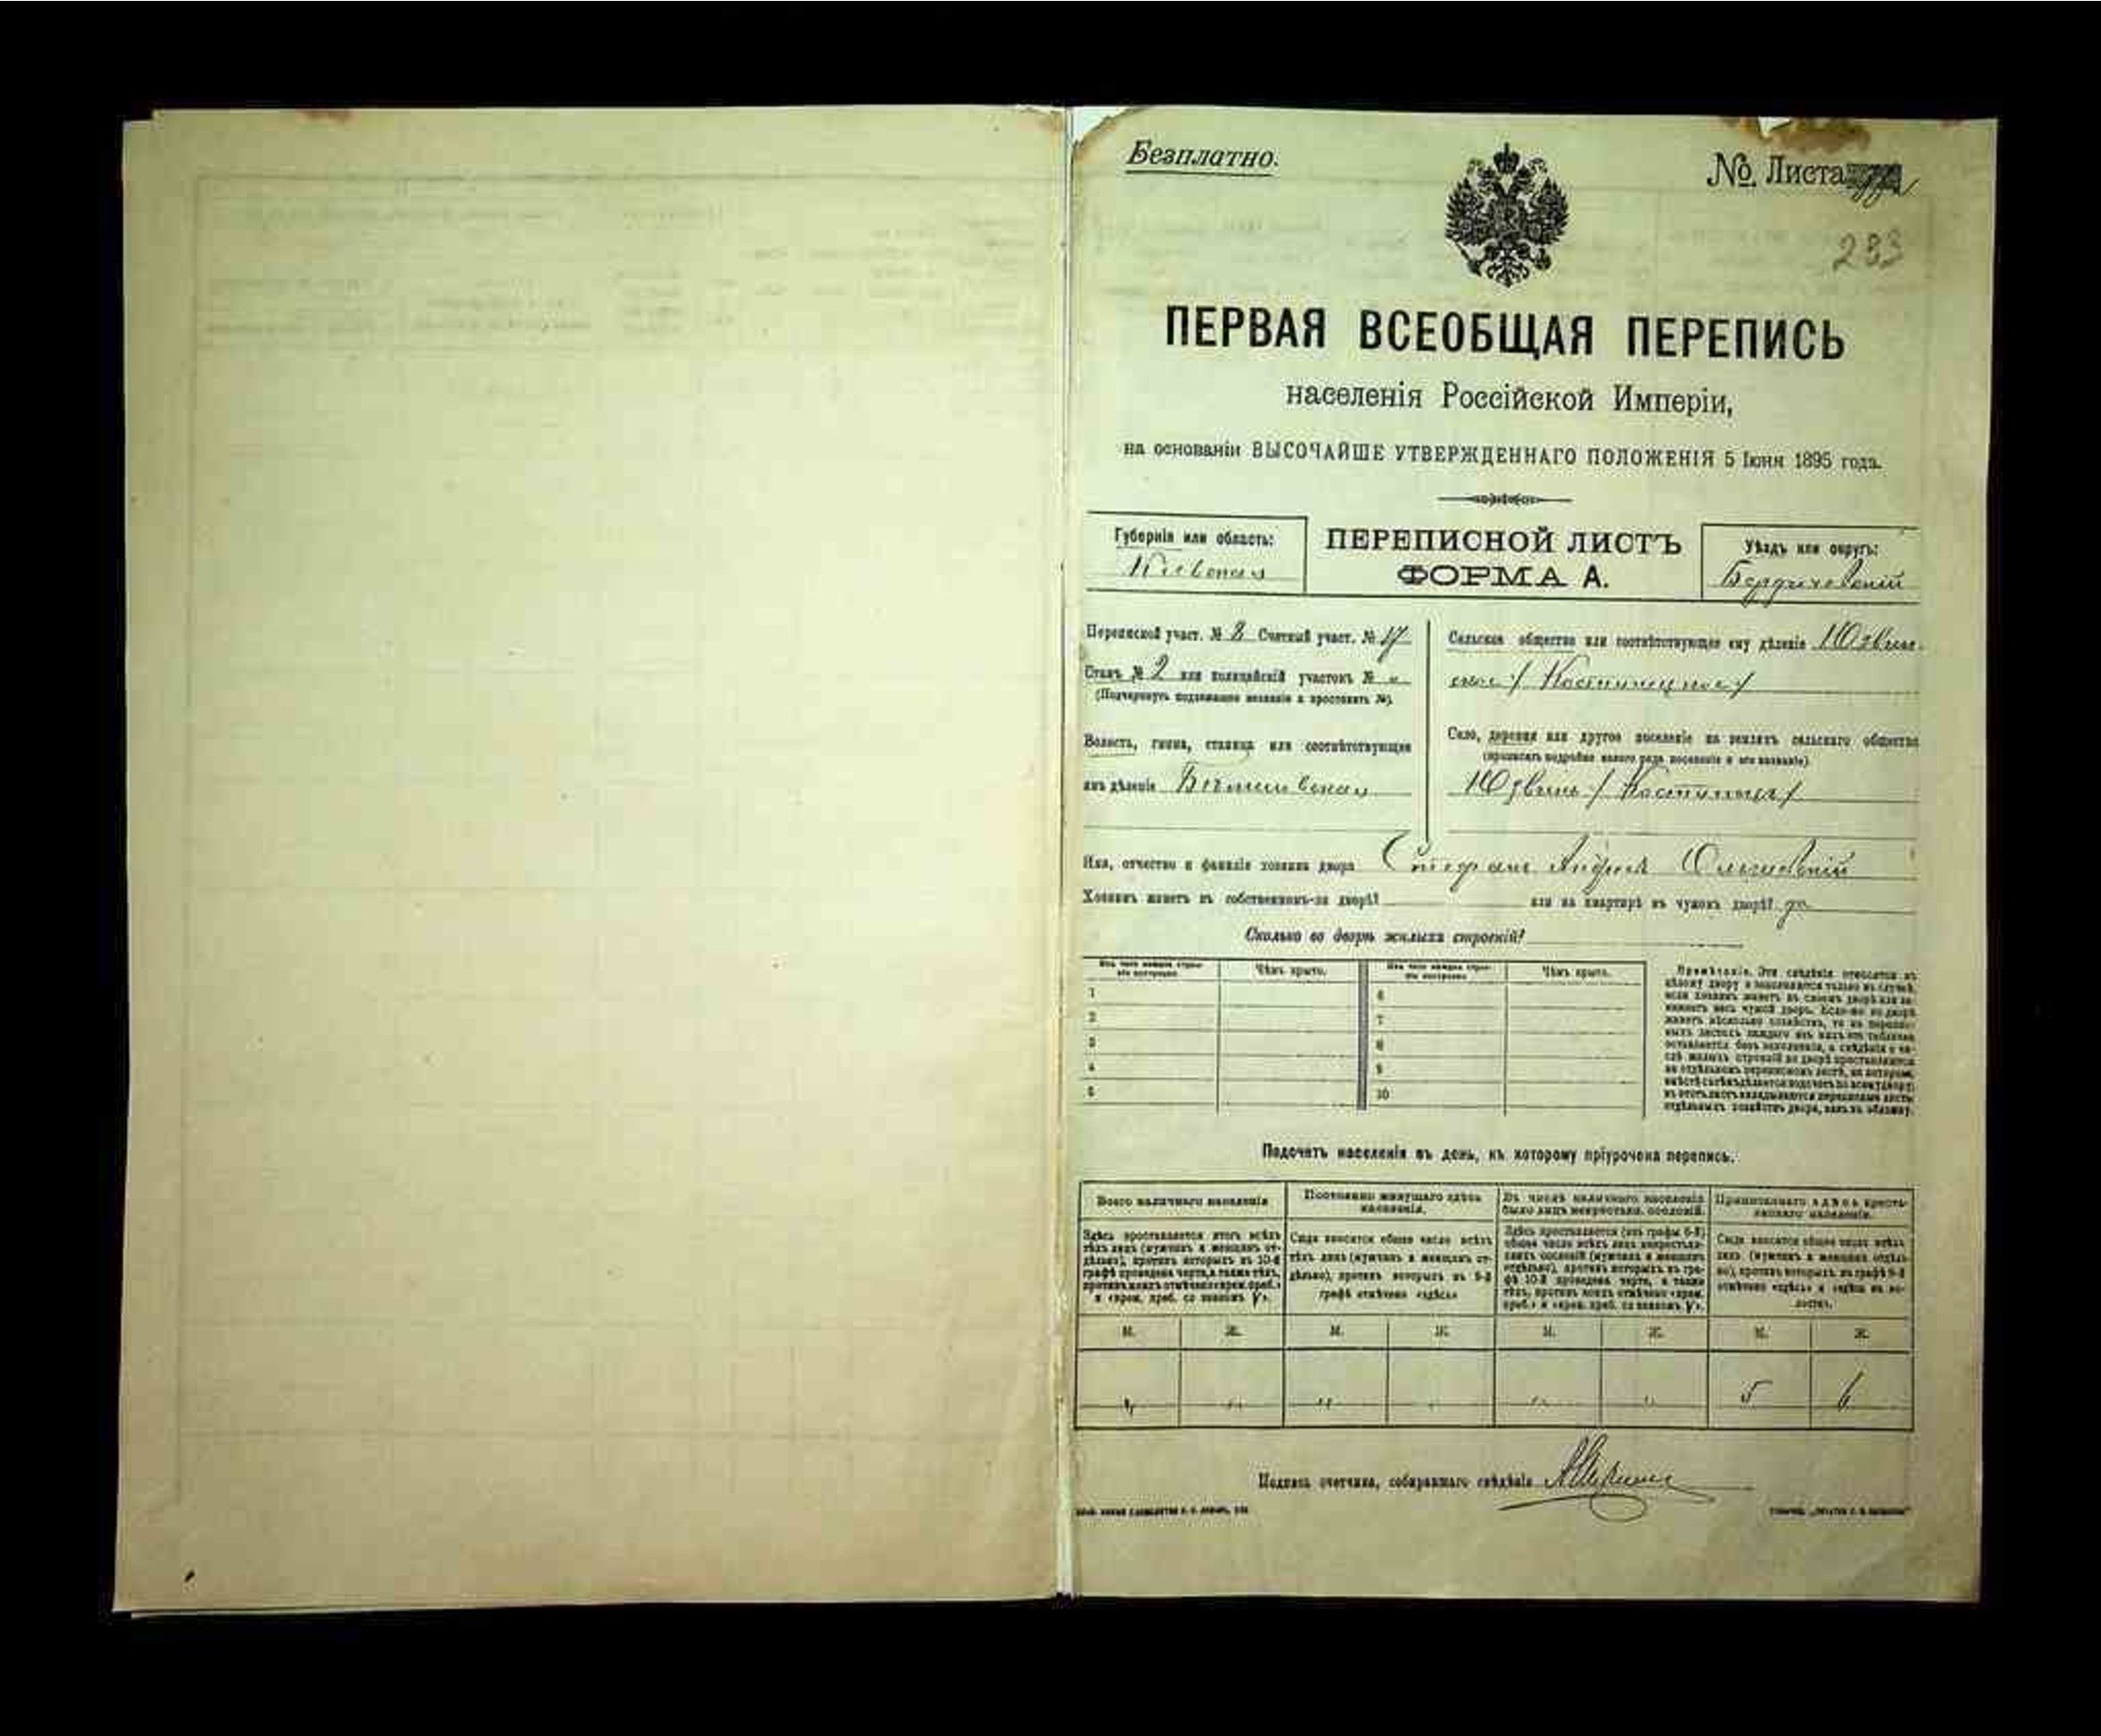 Безплатно.
№ Листа
233
ПЕРВАЯ ВСЕОБЩАЯ ПЕРЕПИСЬ
населенія Россійской Имперіи,
на основаніи ВЫСОЧАЙШЕ УТВЕРЖДЕННАГО ПОЛОЖЕНІЯ 5 Іюня 1895 года.
Губернія или область:
Кіевская
ПЕРЕПИСНОЙ ЛИСТЪ
ФОРМА А.
Уѣздъ или округъ:
Бердичевскій
Переписной участ. № 8 Счетный участ. № 17
Станъ № 2 или полицейскій участокъ № „
(Подчеркнуть подлежащее названіе и проставить №).
Волость, гмина, станица или соотвѣтствующее
имъ дѣленіе
Сельское общество или соотвѣтствующее ему дѣленіе Юзвин-
ское
Село, деревня или другое поселеніе на земляхъ сельскаго общества
(прописать подробно какого рода поселеніе и его названіе)
Юзвинъ
Имя, отчество и фамилія хозяина двора Стефанъ Андреевъ
Хозяинъ живетъ въ собственномъ-ли дворѣ? или на квартирѣ въ чужомъ дворѣ? да
Сколько во дворѣ жилыхъ строеній?
Изъ чего каждое строеніе построено Чѣмъ крыто. Изъ чего каждое строеніе построено Чѣмъ крыто.
1 6
2 7
3 8
4 9
5 10
Примѣчаніе. Эти свѣдѣнія относятся къ
цѣлому двору и заполняются только въ случаѣ,
если хозяинъ живетъ въ своемъ дворѣ или за-
нимаетъ весь чужой дворъ. Если-же во дворѣ
живетъ нѣсколько хозяйствъ, то на перепис-
ныхъ листахъ каждаго изъ нихъ эта табличка
оставляется безъ заполненія, а свѣдѣнія о чи-
слѣ жилыхъ строеній во дворѣ проставляются
на отдѣльномъ переписномъ листѣ, на которомъ
вмѣстѣ съ тѣмъ дѣлается подсчетъ по всему двору;
въ этотъ листъ вкладываются переписные листы
отдѣльныхъ хозяйствъ двора, какъ въ обложку.
Подсчетъ населенія въ день, къ которому пріурочена перепись.
Всего наличнаго населенія
Здѣсь проставляется итогъ всѣхъ
тѣхъ лицъ (мужчинъ и женщинъ от-
дѣльно), противъ которыхъ въ 10-й
графѣ проведена черта, а также тѣхъ,
противъ коихъ отмѣчено «врем. преб.»
и «врем. преб. со знакомъ V».
Постоянно живущаго здѣсь
населенія.
Сюда вносится общее число всѣхъ
тѣхъ лицъ (мужчинъ и женщинъ от-
дѣльно), противъ которыхъ въ 9-й
графѣ отмѣчено «здѣсь»
Въ числѣ наличнаго населенія
было лицъ некрестьян. сословій.
Здѣсь проставляется (изъ графы 6-й)
общее число всѣхъ лицъ некрестьян-
скихъ сословій (мужчинъ и женщинъ
отдѣльно), противъ которыхъ въ гра-
фѣ 10-й проведена черта, а также
тѣхъ, противъ коихъ отмѣчено «врем.
преб.» и «врем. преб. со знакомъ V».
Приписаннаго здѣсь кресть-
янскаго населенія.
Сюда вносится общее число всѣхъ
лицъ (мужчинъ и женщинъ отдѣль-
но), противъ которыхъ въ графѣ 8-й
отмѣчено «здѣсь» и «здѣсь въ во-
лости».
М. Ж. М. Ж. М. Ж. М. Ж.
„ „ „ „ „ „ 5 6
Подпись счетчика, собиравшаго свѣдѣнія